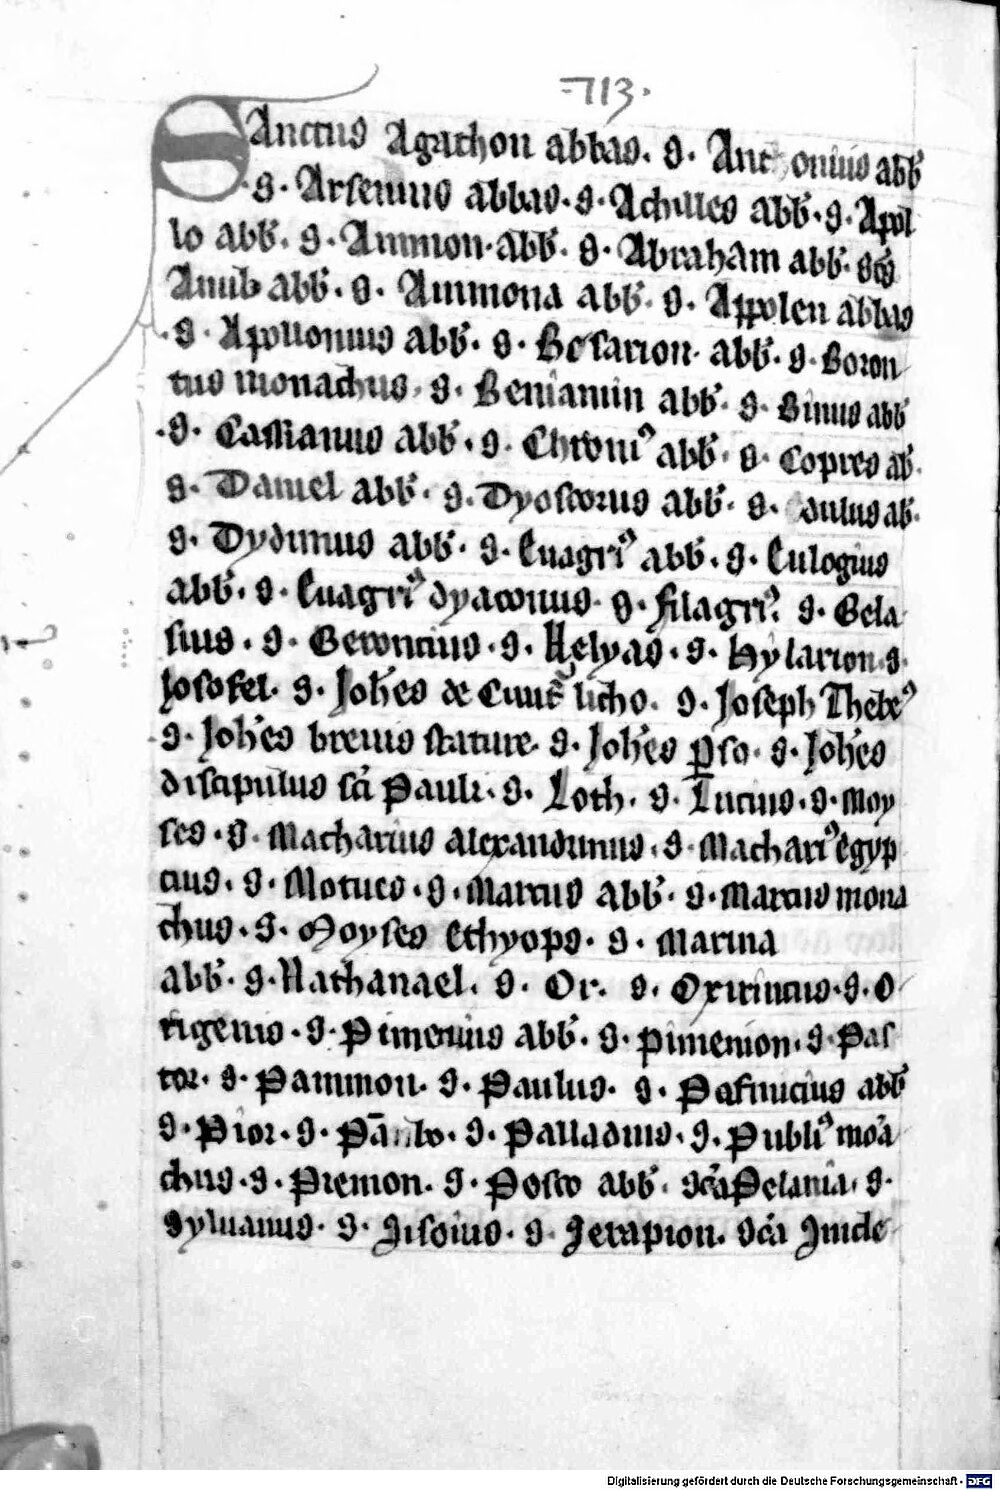 713.
Sanctus Agathon abbas. S. Anthonius abb̄
S. Arsenius abbas. S. Achilles abb̄. S. Apol
lo abb̄. S. Ammon. abb̄. S. Abraham abb̄. Sc̄s
Anub abb̄. S. Ammona abb̄. S. Appolen abbas
S. Apollonius abb̄. S. Besarion. abb̄. S. Boron
tus monachus. S. Beniamin abb̄. S. Binus abb̄
S. Cassianus abb̄. S. Chroniꝰ abb̄. S. Copres ab̄.
S. Daniel abb̄. S. Dyoscorus abb̄. S. ab̄.
S. Dydimus abb̄. S. Euagriꝰ abb̄. S. Eulogius
abb̄. S. Euagriꝰ dyaconus. S. Filagriꝰ. S. Gela
sius. S. Geroncius. S. Helyas. S. Hylarion. S.
S. Joh̄es de licho. S. Joseph Thebeꝰ
S. Joh̄es breuis stature. S. Joh̄es ꝑso. S. Joh̄es
discipulus sc̄i Pauli. S. Loth. S. Lucius. S. Moy
ses. S. Macharius alexandrinus. S. Machariꝰ egyp
cius. S. Motues. S. Marcus abb̄. S. Marcus mona
chus. S. Moyses ethyops. S. Marina
abb̄. S. Nathanael. S. Or. S. S. O
rigenis. S. Pimenius abb̄. S. Pimenion. S. Pas
tor. S. Pammon. S. Paulus. S. Pafnucius abb̄
S. Pior. S. Pā bo. S. Palladius. S. Publiꝰ moā
chus. S. Piemon. S. Posco abb̄. Sc̄a Pelania. S.
Syluanus. S. Sisoius. S. Serapion. Sc̄a Sincle
Digitalisierung gefördert durch die Deutsche Forschungsgemeinschaft - DFG